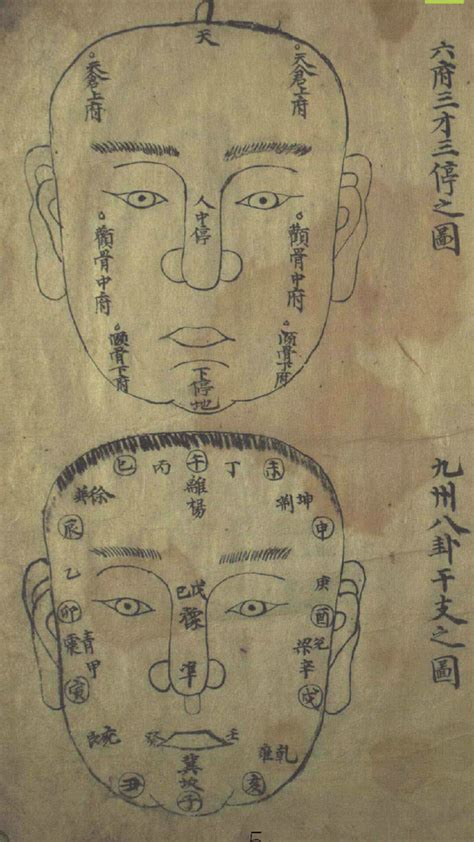 六府三才三停之圖
天
天倉上府
天倉上府
人中停
顴骨中府
顴骨中府
頤骨下府
頤骨下府
下停地
九州八卦干支之圖
巳 丙 午 丁 未
離揚
巽徐
坤荊
辰
申
乙
庚
戊己
豫
卯
酉
震青
兌梁
甲
辛
準
寅
戌
艮兗
癸
壬
乾雍
冀坎
丑
子
亥
5